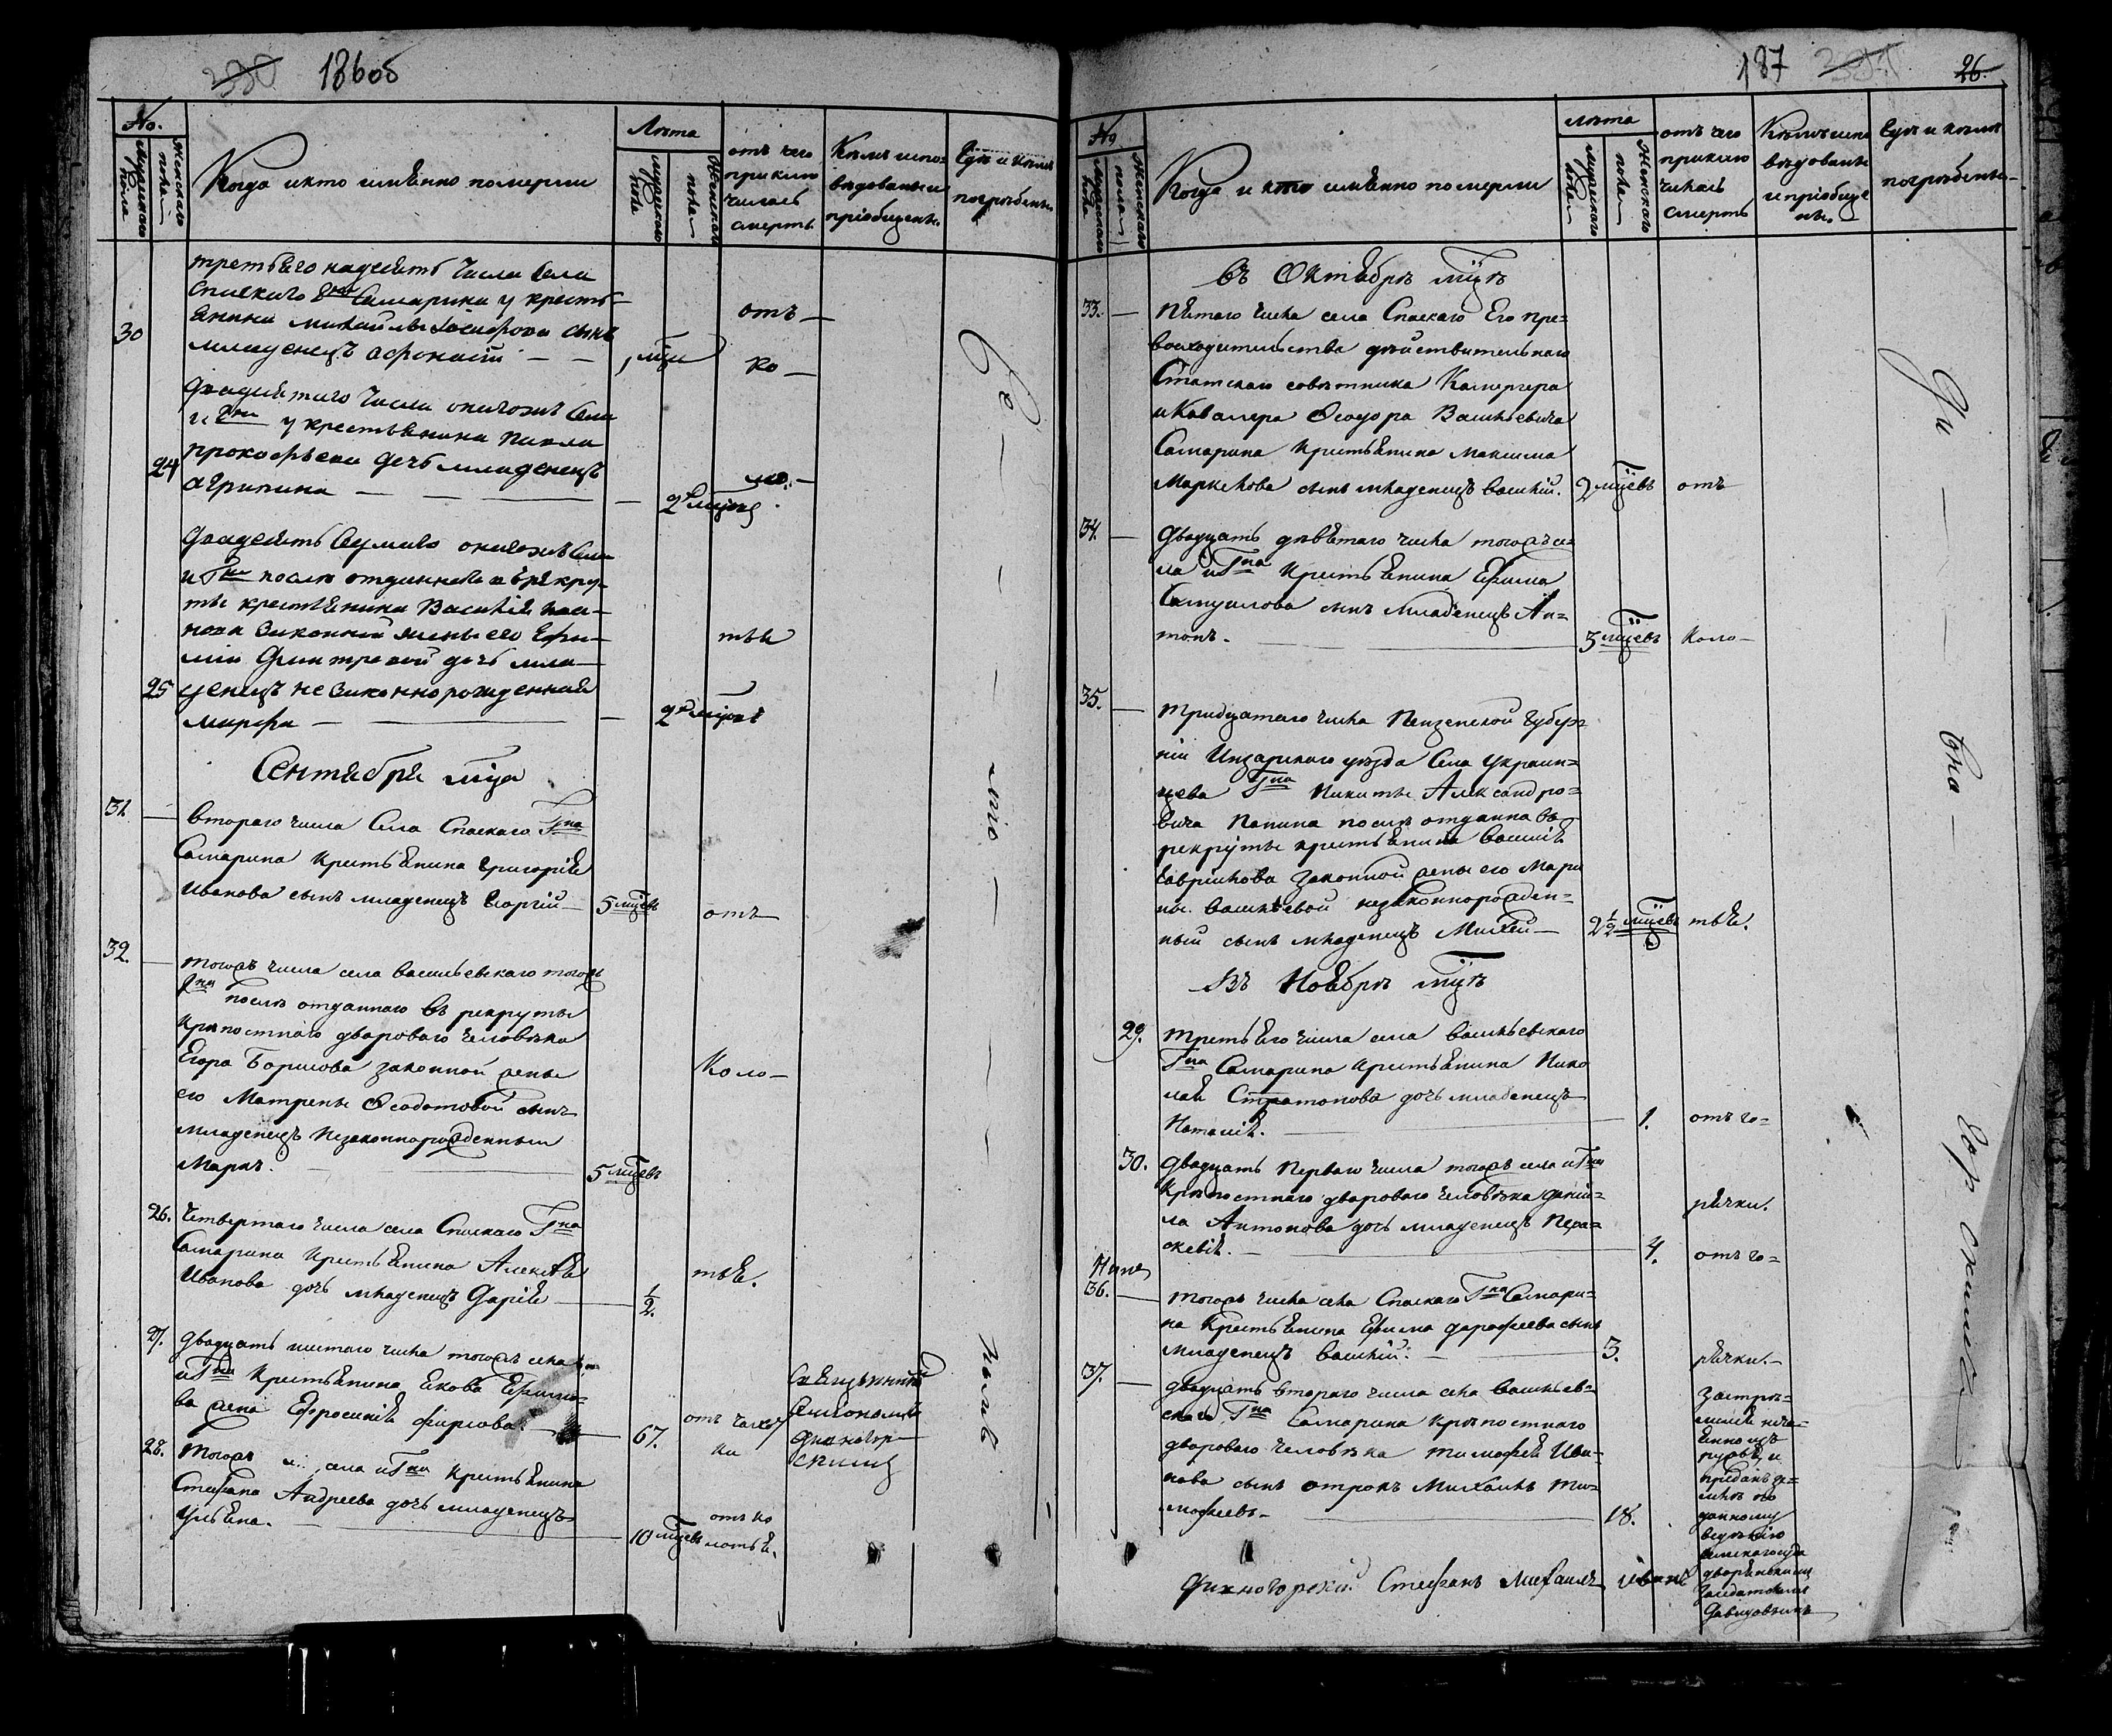 330 186об
№.
Мужескаго пола
Женскаго пола
Когда и кто имѣнно померли
Лѣта
Мужескаго пола
Женскаго пола
отъ чего
приклю
чилась
смерть
Кѣмъ испо-
вѣдованы и
пріобщены
Гдѣ и кѣмъ
погребены
третьяго надесять числа села
Спаскаго Гна Самарина у кресть-
30
янина Михайлы сынъ
младенецъ Афонасій — —
1 мца
отъ —
ко —
двадцятаго числа
и Гна у крестьянина Павла
24
Прокофьева дочь младенецъ
Агрипина — — —
2 мцовъ
ло. —
двадесять седмаго
и Гна послѣ отданнаго въ рекру-
ты крестьянина Василія
законной жены его Ефи-
міи Дмитревой дочь мла-
25
денецъ незаконнорожденная
Марфа —
2 мцовъ
тья
Сентября мца
31. — втораго числа Села Спаскаго Гна
Самарина Крестьянина Григорія
Иванова сынъ младенецъ Георгій —
5 мцевъ
отъ
32. — тогожъ числа села Васильевскаго тогожъ
Гна послѣ отданнаго въ рекруты
Крѣпостнаго двороваго человѣка
Егора Борисова законной жены
его Матрены Ѳеодотовой сынъ
младенецъ незаконнорожденный
Маркъ.
5 мцевъ
Коло —
26. Четвертаго числа села Спаскаго Гна
Самарина Крестьянина Алексѣя
Иванова дочь младенецъ Дарія —
1/2.
тья.
27. двадцать шестаго числа тогожъ села
и Гна Крестьянина Якова Ефимо-
ва жена Ефросинія Фирсова. —
67.
отъ чахот
ки
Священникомъ
Симіономъ
Финогор
скимъ
28. Тогожъ села и Гна Крестьянина
Стефана Андреева дочь младенецъ
Ульяна. —
10 мцевъ
отъ ко
лотья.
187 331 26.
№
Мужескаго пола
Женскаго пола
Когда и кто имѣнно померли
лѣта
мужескаго пола
Женскаго пола
отъ чего
приклю
чилась
смерть
Кѣмъ испо
вѣдованы
и пріобще
ны. —
Гдѣ и кѣмъ
погребены —
въ Октябрѣ мцѣ
33. — Пятаго числа села Спаскаго Его пре=
восходительства дѣйствительнаго
Статскаго совѣтника Камергера
и Кавалера Ѳеодора Васильевича
Самарина Крестьянина Максима
Маркелова сынъ младенецъ Василій.
2 мцевъ
отъ
34. — Двадцать девятаго числа тогожъ се=
ла и Гна Крестьянина Ефима
Самуилова сынъ младенецъ Ан=
тонъ. —
3 мцевъ
Коло —
35. —
Тридцатаго числа Пензенской Губер=
ніи Инсарскаго уѣзда Села Украин=
цева Гна Никиты Александро=
вича Панина послѣ отданна въ
рекруты крестьянина Василія
Гаврилова законной жены его Мари
ны Васильевой незаконнорожден=
ный сынъ младенецъ Михей —
2 1/2 мцевъ
тья.
Въ Ноябрѣ мцѣ
29. Третьяго числа села Васильевскаго
Гна Самарина крестьянина Нико
лая Стратонова дочь младенецъ
Наталія. —
1.
отъ го=
30. Двадцать перваго числа тогожъ села и Гна
Крѣпостнаго двороваго человѣка Дании=
ла Антонова дочь младенецъ Пара=
скевія. —
4.
рячки.
отъ го=
36. — Тогожъ числа села Спаскаго Гна Самари=
на Крестьянина Ефима Дарофеева сынъ
младенецъ Василій. —
3.
рячки. —
37. — двадцать втораго числа села Васильев=
скаго Гна Самарина Крѣпостнаго
двороваго человѣка Тимофея Ива=
нова сынъ отрокъ Михаилъ Ти=
мофеевъ —
18.
застре=
ленъ неча=
янно изъ
ружья, и
преданъ зе=
млѣ по
данному
ведѣнію
На
бна
Финогорскій Стефанъ Михаилъ